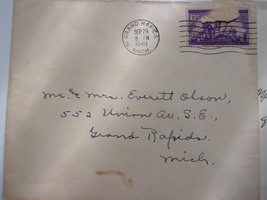 GRAND RAPIDS
SEP 29
8 PM
MICH.
Mr. & Mrs. Everett Olson,
552 Union Av. S.E.,
Grand Rapids
Mich.